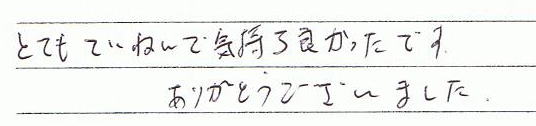 とてもていねいで気持ち良かったです.
ありがとうございました.